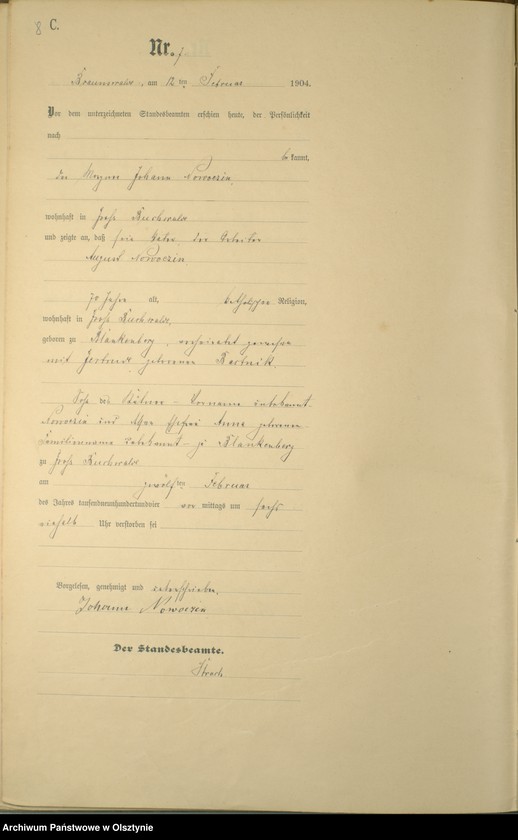 8 C.
Nr. 7.
Braunswalde, am 12ten Februar 1904.
Vor dem unterzeichneten Standesbeamten erschien heute, der Persönlichkeit
nach
bekannt,
der Johann Nowoczin,
wohnhaft in Groß Buchwalde
und zeigte an, daß sein Vater, der
August Nowoczin
70 Jahre alt, katholischer Religion,
wohnhaft in Groß Buchwalde,
geboren zu Blankenberg, verheiratet gewesen
mit Gertrud geborenen Bartnik.
Sohn des – Vorname unbekannt –
Nowoczin und Ehefrau Anna geborenen
Familienname unbekannt – zu Blankenberg
zu Groß Buchwalde
am zwölften Februar
des Jahres tausendneunhundertundvier vor mittags um sechs
einhalb Uhr verstorben sei
Vorgelesen, genehmigt und unterschrieben.
Johann Nowoczin
Der Standesbeamte.
Archiwum Państwowe w Olsztynie